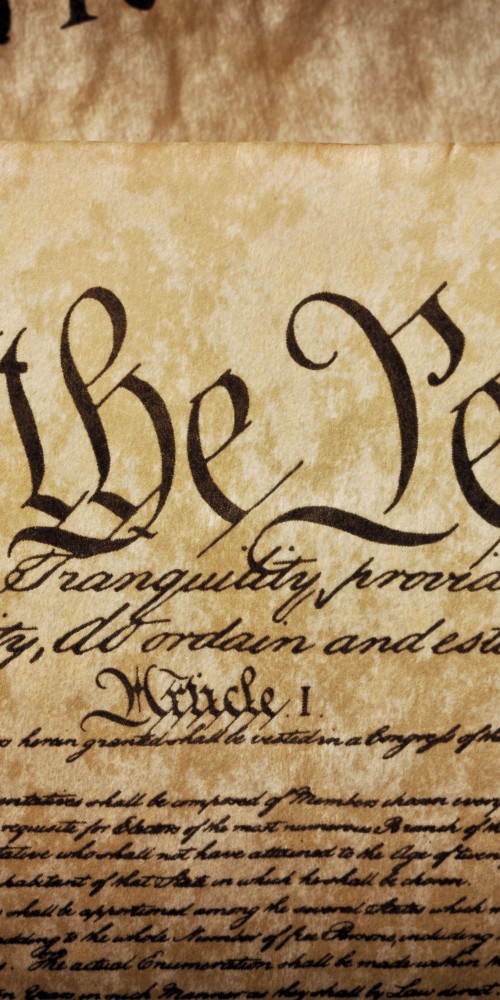 the Pe
Tranquility, provid
ty, do ordain and esta
Article. I.
herein granted shall be vested in a Congress of the
entatives shall be composed of Members chosen every
requisite for Electors of the most numerous Branch of th
tative who shall not have attained to the Age of twen
habitant of that State in which he shall be chosen.
shall be apportioned among the several States which m
adding to the whole Number of free Persons, including
s. The actual Enumeration shall be made within th
Years in such Manner as they shall by Law direct